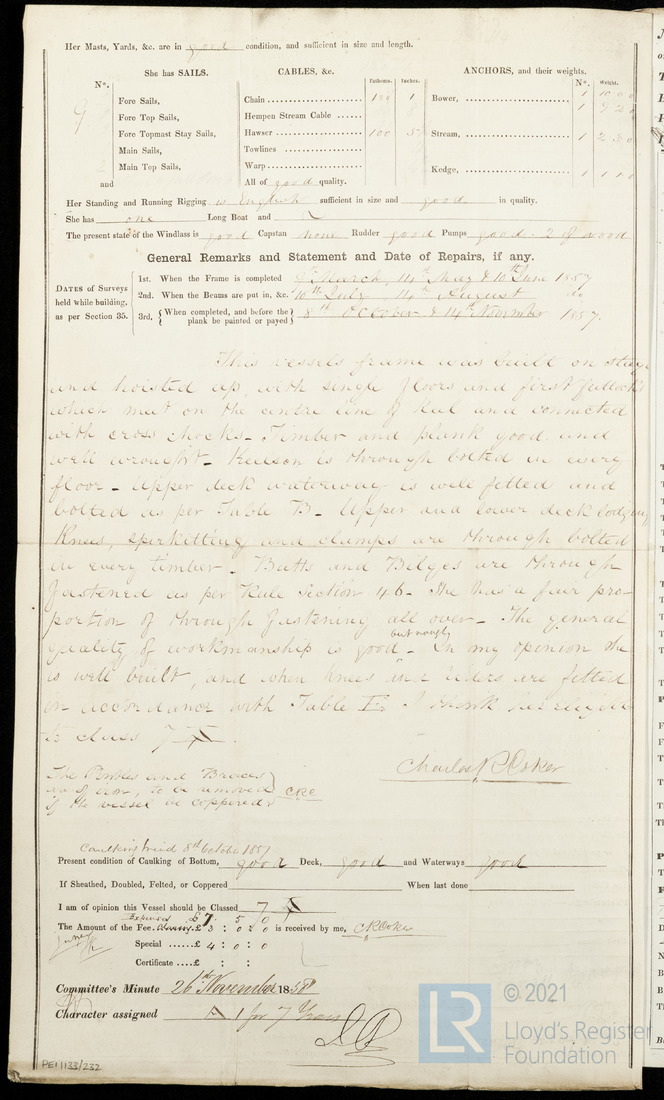 Her Masts, Yards, &c. are in good condition, and sufficient in size and length.
She has SAILS. CABLES, &c. Fathoms. Inches. ANCHORS, and their weights.
N°. N°. Weight.
9 Fore Sails, Chain 120 1 Bower, 1
Fore Top Sails, Hempen Stream Cable 1
Fore Topmast Stay Sails, Hawser 100 Stream, 1
Main Sails, Towlines
Main Top Sails, Warp Kedge, 1
and All of good quality.
Her Standing and Running Rigging is English sufficient in size and good in quality.
She has one Long Boat and
The present state of the Windlass is good Capstan none Rudder good Pumps good. 2 of wood
General Remarks and Statement and Date of Repairs, if any.
DATES of Surveys held while building, as per Section 35.
1st. When the Frame is completed March, 14th May & 10th June 1857
2nd. When the Beams are put in, &c. 10th July 14th August do
3rd. { When completed, and before the plank be painted or payed } 8th October & 14th November 1857.
This vessels frame was built on stage
and hoisted up, with single floors and first futtocks
which meet on the centre line of keel and connected
with cross chocks - Timber and plank good and
well wrought - Keelson is through bolted in every
floor - Upper deck waterway is well fitted and
bolted as per Table B - Upper and lower deck lodging
Knees, spirketting and clamps are through bolted
in every timber - Butts and Bilges are through
fastened as per Rule Section 46 - She has a fair pro-
portion of through fastening all over - The general
quality of workmanship is good but rough - In my opinion she
is well built, and when knees and riders are fitted
in accordance with Table I think her eligible
to class 7 A.
Charles R Coker
The Pintles and Braces
are of iron, to be removed
if the vessel is coppered CRC
Caulking tried 8th October 1857
Present condition of Caulking of Bottom, good Deck, good and Waterways good
If Sheathed, Doubled, Felted, or Coppered When last done
I am of opinion this Vessel should be Classed 7 A
Expenses £7 . 5 0
The Amount of the Fee £ 3 : 0 : 0 is received by me, CRCoker
Special £ 4 : 0 : 0
Certificate £ : :
Committee's Minute 26th November 1858
Character assigned A 1 for 7 Years
PE1/133/232
LR © 2021
Lloyd's Register
Foundation